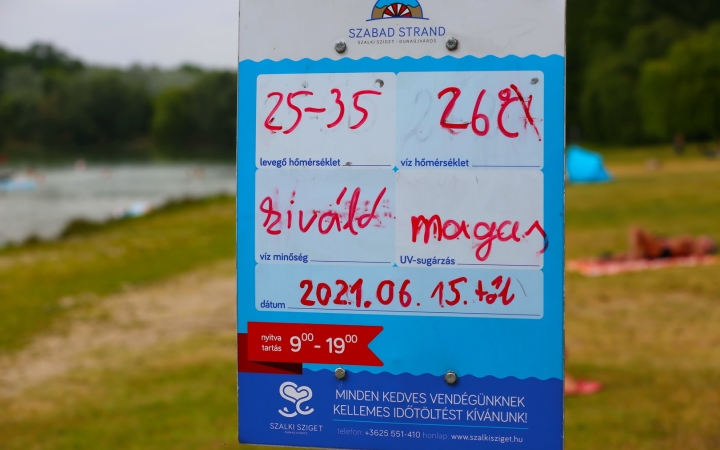 SZABAD STRAND
SZALKI SZIGET - DUNAÚJVÁROS
25-35
levegő hőmérséklet
26
víz hőmérséklet
kiváló
víz minőség
magas
UV-sugárzás
dátum 2021.06.15.től
nyitva tartás 9⁰⁰ - 19⁰⁰
MINDEN KEDVES VENDÉGÜNKNEK
KELLEMES IDŐTÖLTÉST KÍVÁNUNK!
SZALKI SZIGET
telefon: +3625 551-410 honlap: www.szalkisziget.hu